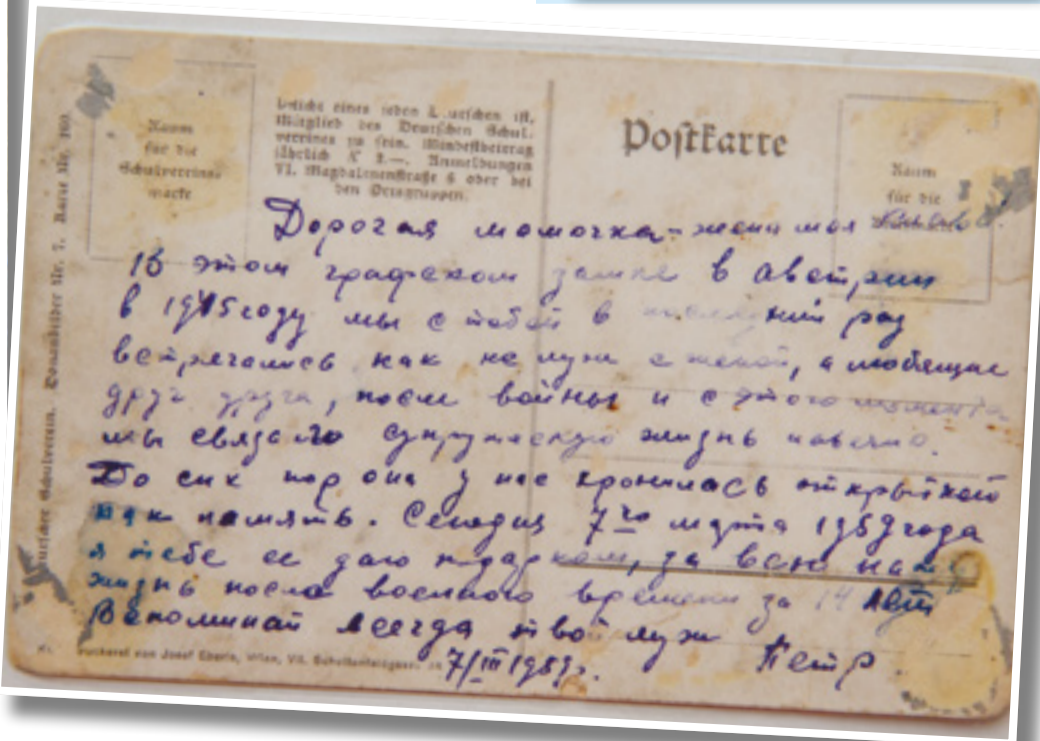 Raum
für die
Schulvereins-
marke
Pflicht eines jeden Deutschen ist,
Mitglied des Deutschen Schul-
vereines zu sein. Mindestbeitrag
jährlich K 2.—. Anmeldungen
VI. Magdalenenstraße 6 oder bei
den Ortsgruppen.
Postkarte
Raum
für die
Deutscher Schulverein. Donaubilder Nr. 7. Karte Nr.
Дорогая мамочка-жена моя
В этом графском замке в Австрии
в 1945 году мы с тобой в последний раз
встречались как не муж с женой, а любящие
друг друга, после войны и с этого момента
мы связало супружескую жизнь навечно.
До сих пор она у нас хранилась открыткой
как память. Сегодня 7го марта 1959 года
я тебе ее даю подарком, за всю нашу
жизнь после военного времени за 14 лет
Вспоминай всегда твой муж Петр.
7/III 1959г.
Druckerei von Josef Eberle, Wien, VII. Schottenfeldgasse